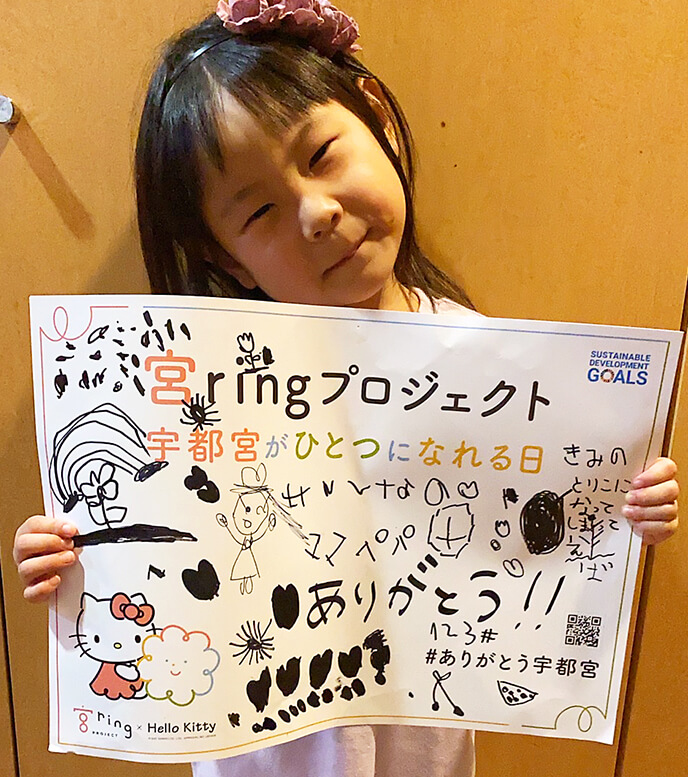 SUSTAINABLE
DEVELOPMENT
GOALS
宮ringプロジェクト
宇都宮がひとつになれる日
きみの
とりこに
なって
しまえば
ママ パパ
ありがとう!!
123#
#ありがとう宇都宮
宮ring
PROJECT
× Hello Kitty